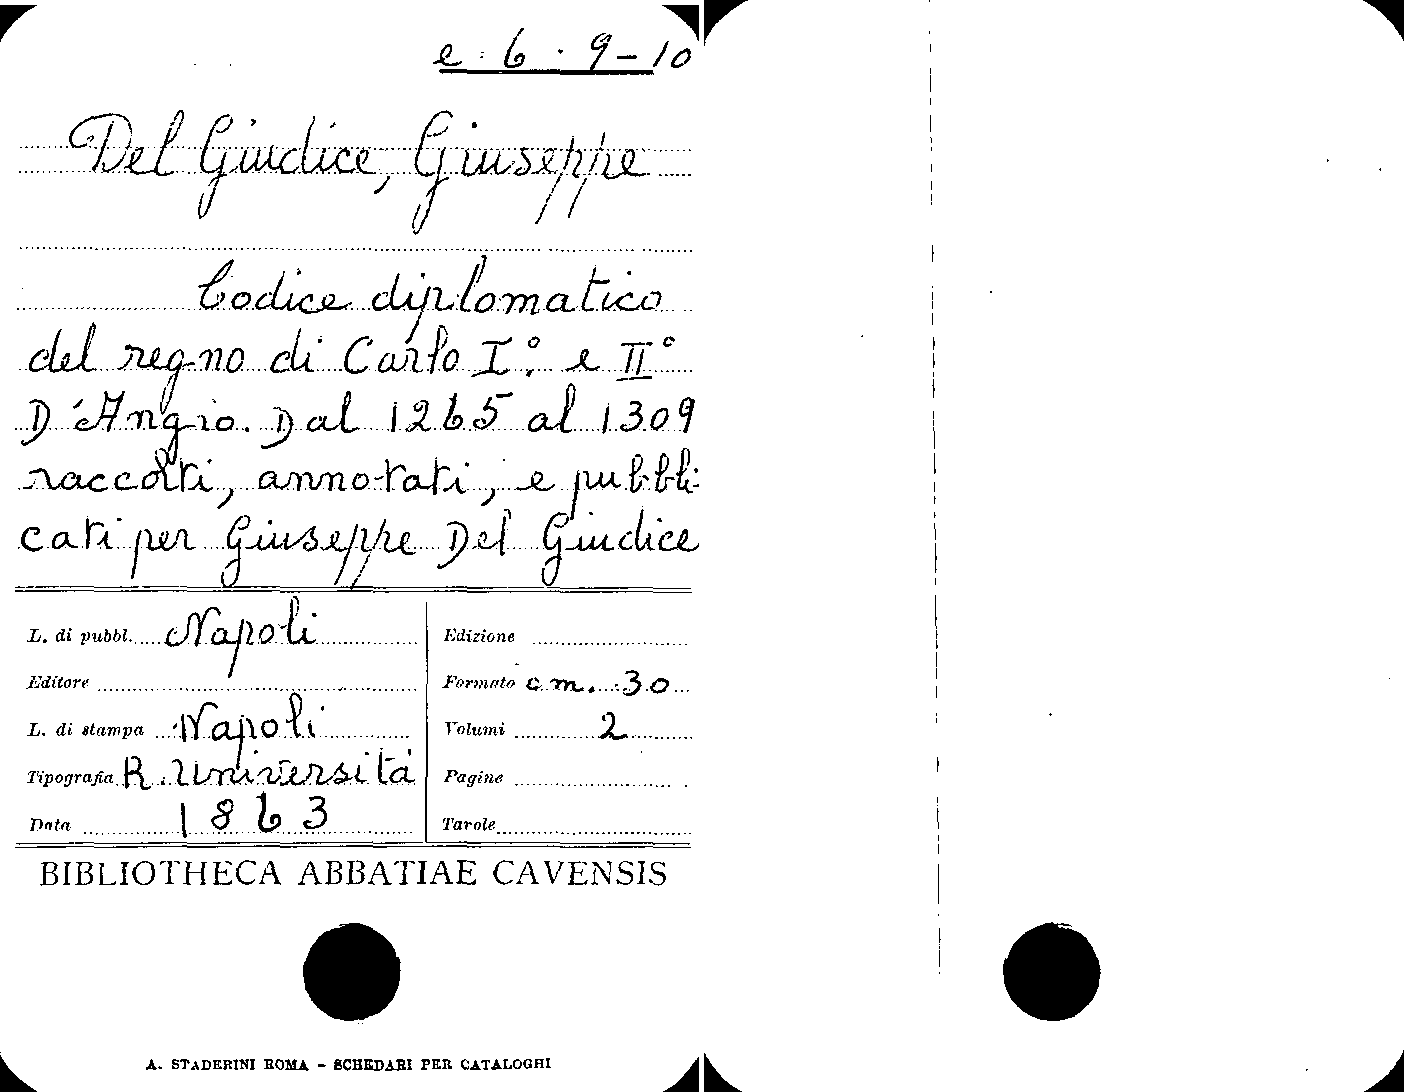 e. 6. 9-10
Del Giudice, Giuseppe
Codice diplomatico
del regno di Carlo I.° e II°
D'Angio. Dal 1265 al 1309
raccolti, annotati, e pubbli-
cati per Giuseppe Del Giudice
L. di pubbl. Napoli
Editore
L. di stampa Napoli
Tipografia R. Università
Data 1863
Edizione
Formato cm. 30
Volumi 2
Pagine
Tavole
BIBLIOTHECA ABBATIAE CAVENSIS
A. STADERINI ROMA - SCHEDARI PER CATALOGHI